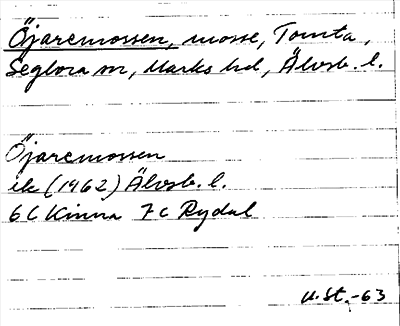 Öjaremossen, mosse, Tomta,
Seglora sn, Marks hd, Älvsb. l.
Öjaremossen
ek (1962) Älvsb. l.
6C Kinna 7C Rydal
U.St.-63